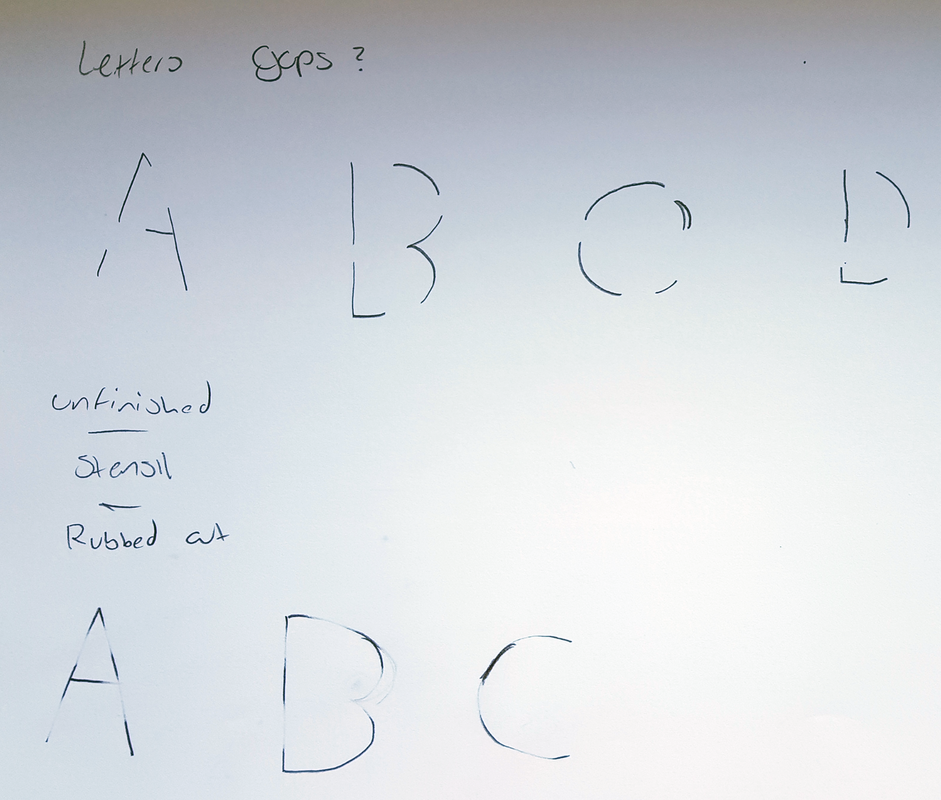 Letters gaps?
A B C D
unfinished
Stensil
Rubbed out
A B C